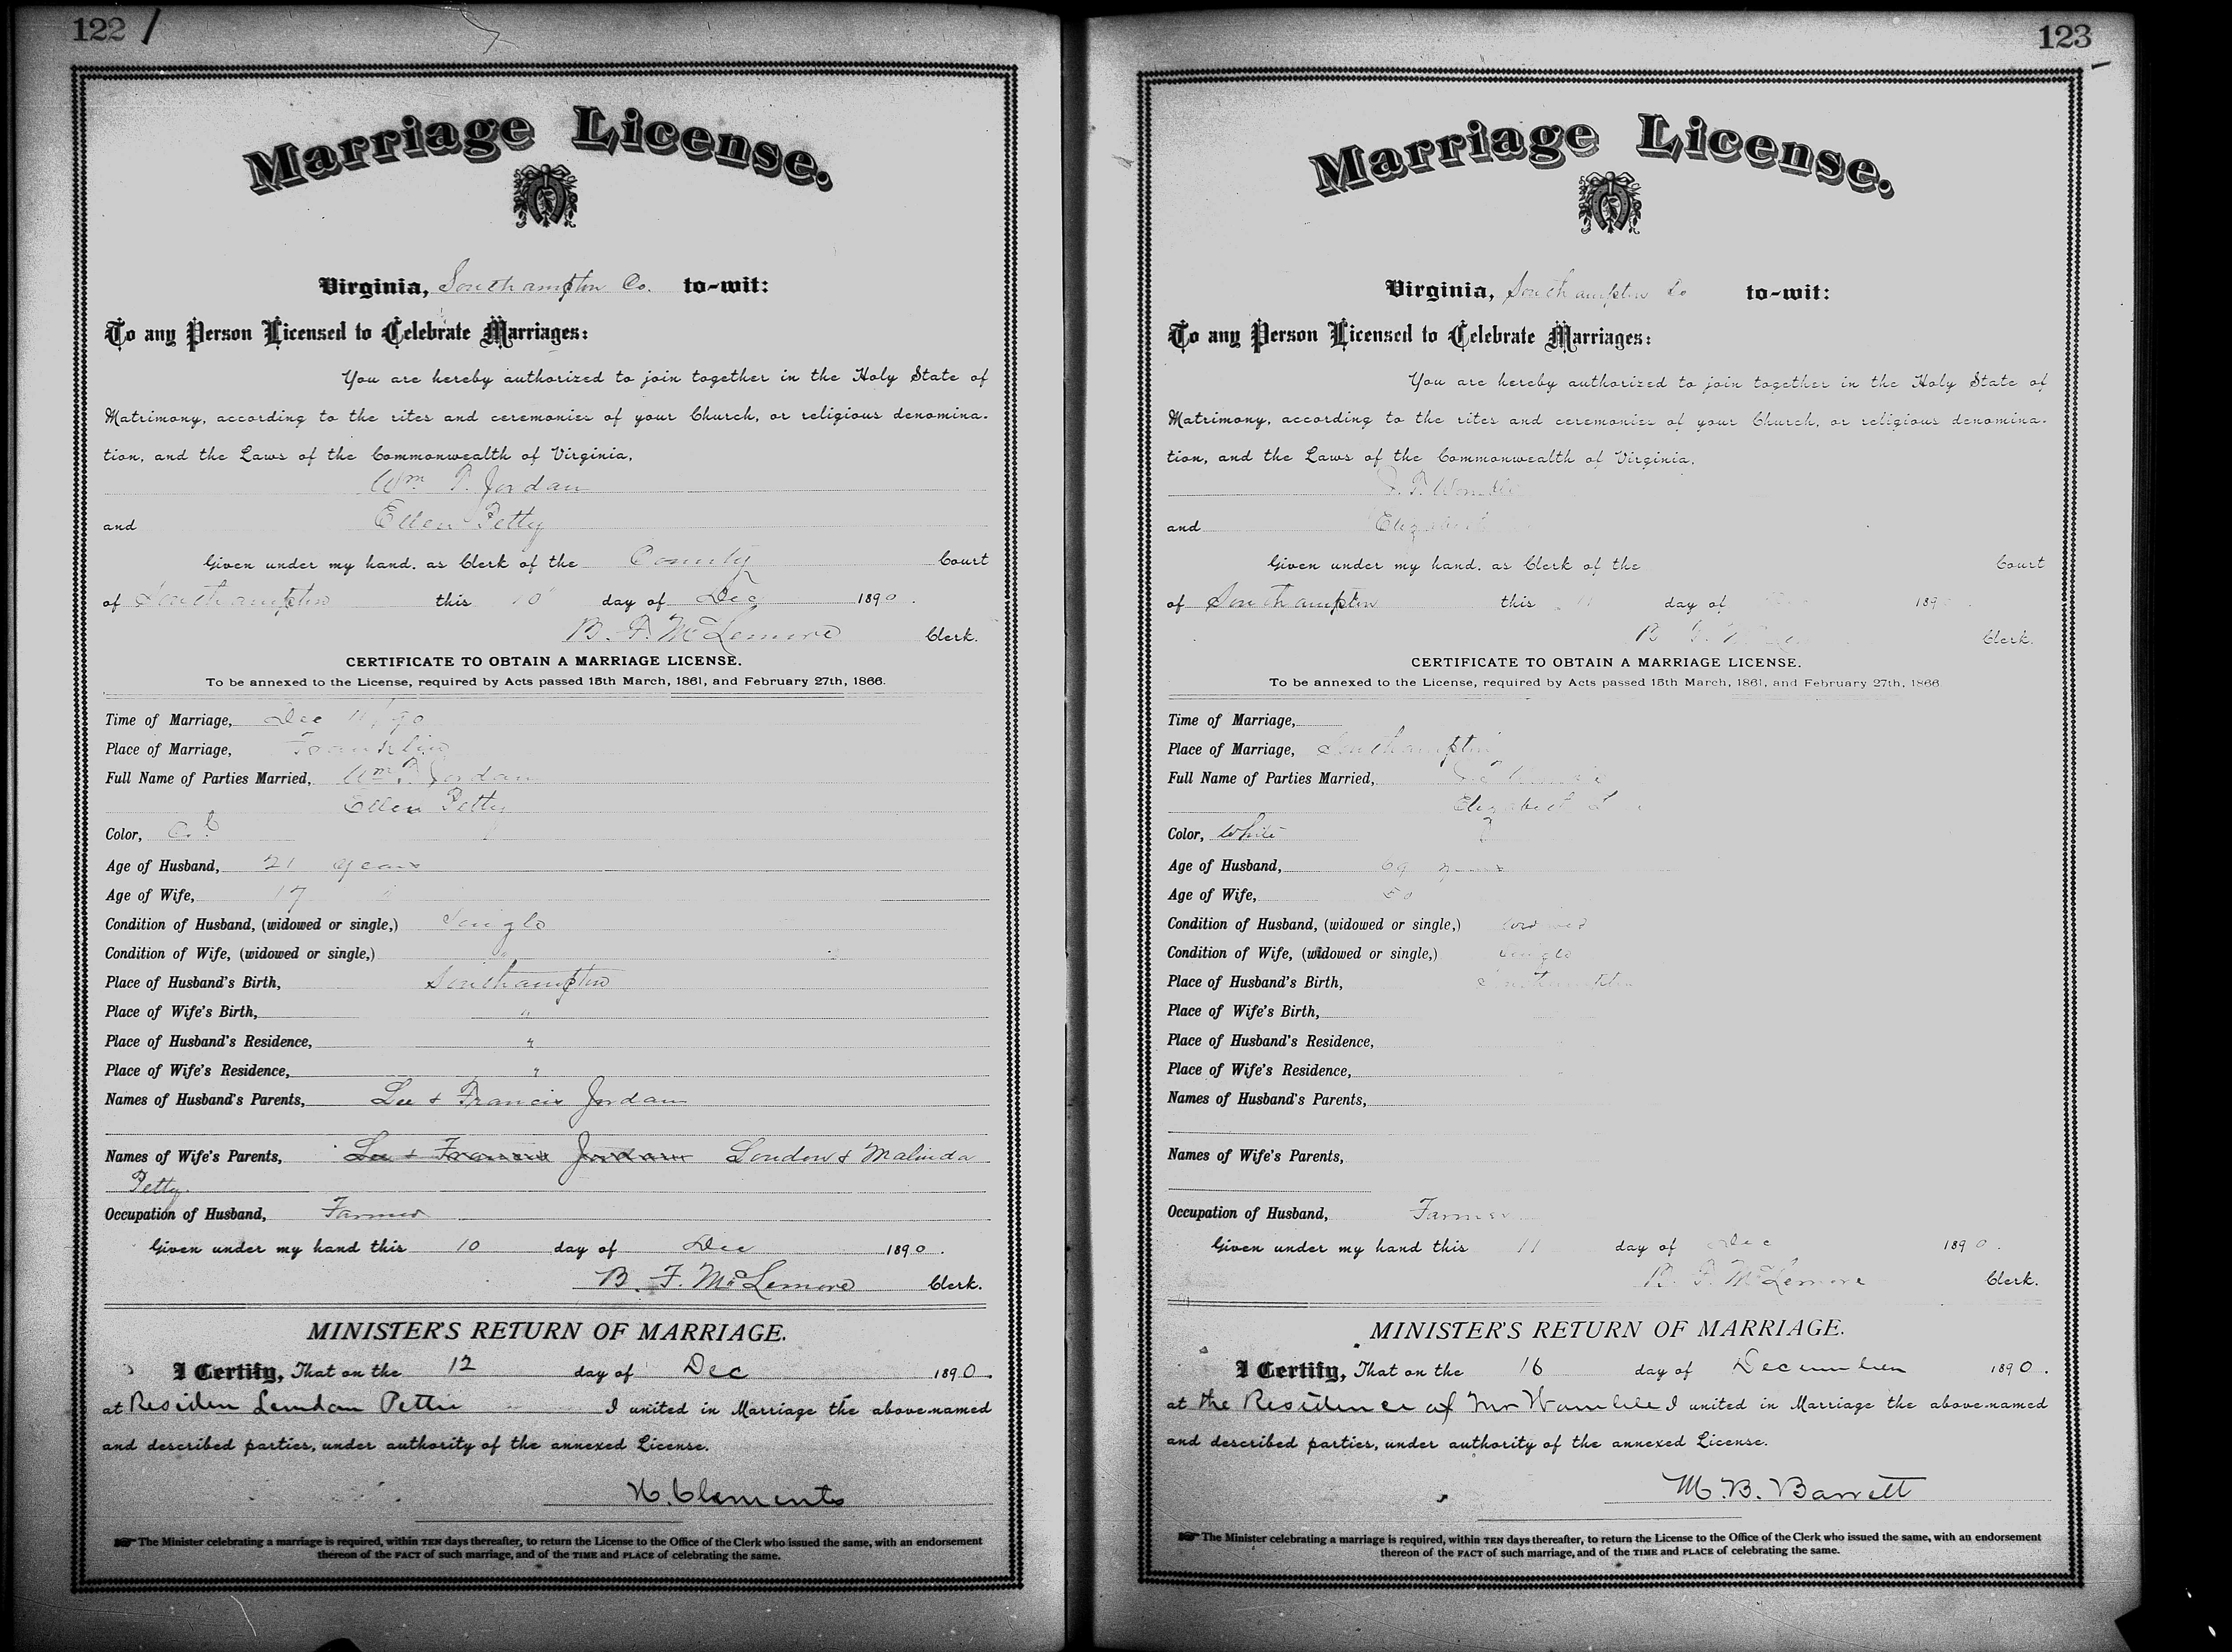 122
Marriage License.
Virginia, Southampton Co. to-wit:
To any Person Licensed to Celebrate Marriages:
You are hereby authorized to join together in the Holy State of
Matrimony, according to the rites and ceremonies of your Church, or religious denomina-
tion, and the Laws of the Commonwealth of Virginia,
Wm P. Jordan
and Ellen Petty
Given under my hand, as Clerk of the County Court
of Southampton this 10" day of Dec 1890.
B. F. McLemore Clerk.
CERTIFICATE TO OBTAIN A MARRIAGE LICENSE.
To be annexed to the License, required by Acts passed 15th March, 1861, and February 27th, 1866.
Time of Marriage, Dec 11/90
Place of Marriage, Franklin
Full Name of Parties Married, Wm P. Jordan
Ellen Petty
Color, Col
Age of Husband, 21 years
Age of Wife, 17 "
Condition of Husband, (widowed or single,) Single
Condition of Wife, (widowed or single,) "
Place of Husband's Birth, Southampton
Place of Wife's Birth, "
Place of Husband's Residence, "
Place of Wife's Residence, "
Names of Husband's Parents, Lee & Francis Jordan
Names of Wife's Parents, Lee & Francis Jordan London & Malinda
Petty.
Occupation of Husband, Farmer
Given under my hand this 10 day of Dec 1890.
B. F. McLemore Clerk.
MINISTER'S RETURN OF MARRIAGE.
I Certify, That on the 12 day of Dec 1890.
at Residen Lendan Pettie I united in Marriage the above-named
and described parties, under authority of the annexed License.
Clements
The Minister celebrating a marriage is required, within TEN days thereafter, to return the License to the Office of the Clerk who issued the same, with an endorsement
thereon of the FACT of such marriage, and of the TIME and PLACE of celebrating the same.
123
Marriage License.
Virginia, Southampton Co to-wit:
To any Person Licensed to Celebrate Marriages:
You are hereby authorized to join together in the Holy State of
Matrimony, according to the rites and ceremonies of your Church, or religious denomina-
tion, and the Laws of the Commonwealth of Virginia,
Womble
and Elizabeth
Given under my hand, as Clerk of the Court
of Southampton this 11 day of 189
B F McLe Clerk.
CERTIFICATE TO OBTAIN A MARRIAGE LICENSE.
To be annexed to the License, required by Acts passed 15th March, 1861, and February 27th, 1866
Time of Marriage,
Place of Marriage, Southampton
Full Name of Parties Married,
Elizabeth
Color, White
Age of Husband, 69 years
Age of Wife, 50
Condition of Husband, (widowed or single,) widowed
Condition of Wife, (widowed or single,) Single
Place of Husband's Birth, Southampton
Place of Wife's Birth,
Place of Husband's Residence,
Place of Wife's Residence,
Names of Husband's Parents,
Names of Wife's Parents,
Occupation of Husband, Farmer
Given under my hand this 11 day of Dec 1890.
B. F. McLemore Clerk.
MINISTER'S RETURN OF MARRIAGE.
I Certify, That on the 16 day of December 1890.
at the Residence of Mr Womble I united in Marriage the above-named
and described parties, under authority of the annexed License.
M. B. Barrett
The Minister celebrating a marriage is required, within TEN days thereafter, to return the License to the Office of the Clerk who issued the same, with an endorsement
thereon of the FACT of such marriage, and of the TIME and PLACE of celebrating the same.